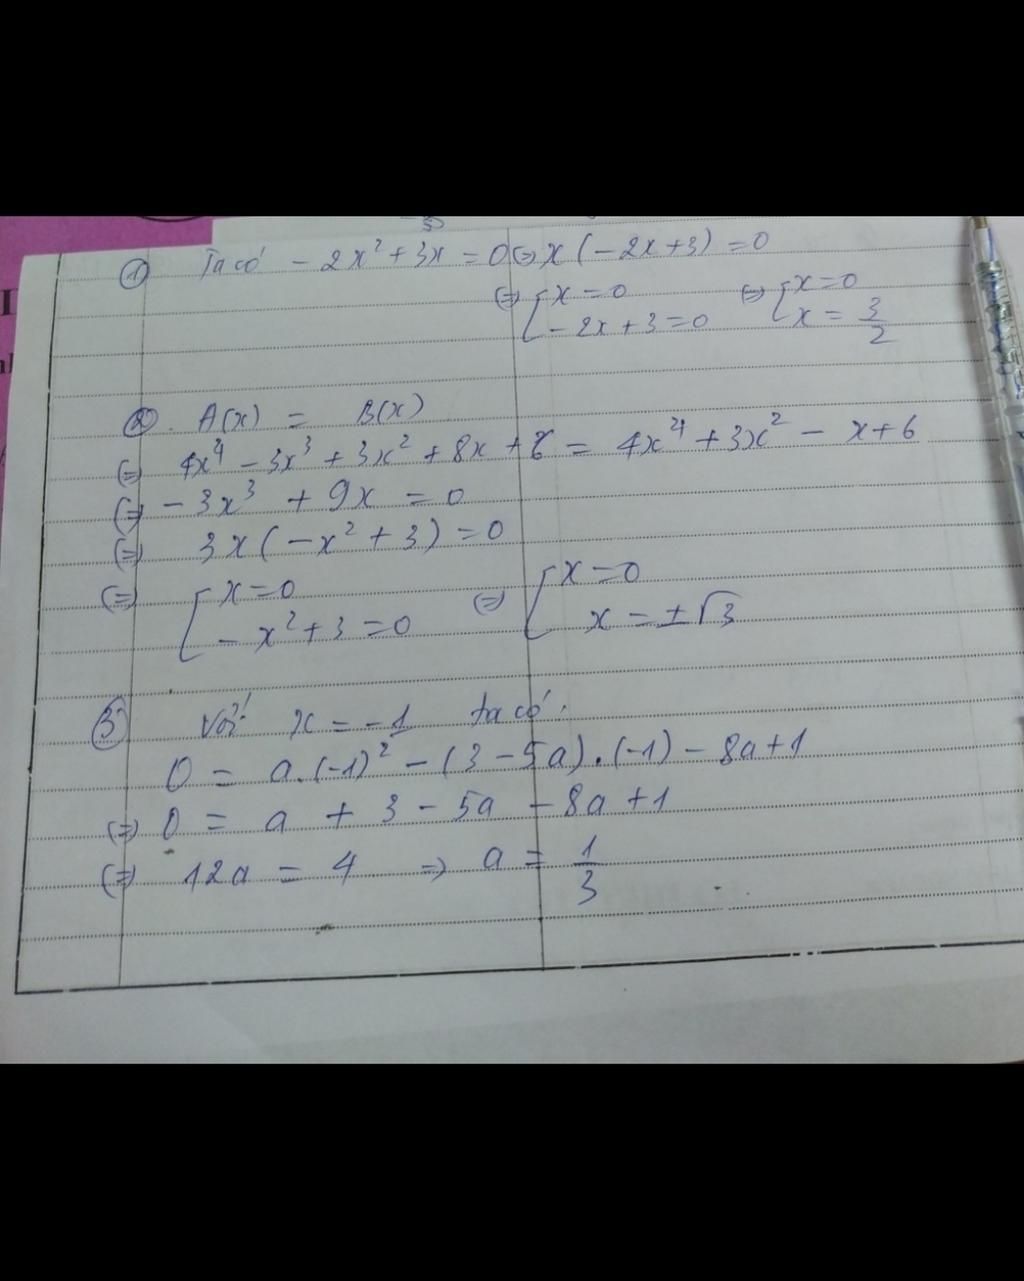 ① Ta có - 2x² + 3x = 0 (=) x (- 2x + 3) = 0
(=) [ x = 0 (=) [ x = 0
- 2x + 3 = 0 x = 3/2
②. A(x) = B(x)
(=) 4x⁴ - 3x³ + 3x² + 8x + 6 = 4x⁴ + 3x² - x + 6
(=) - 3x³ + 9x = 0
(=) 3x (- x² + 3) = 0
(=) [ x = 0 (=) [ x = 0
- x² + 3 = 0 x = ± √3
③ Với x = - 1 ta có:
0 = a. (-1)² - (3 - 5a) . (-1) - 8a + 1
(=) 0 = a + 3 - 5a - 8a + 1
(=) 12a = 4 => a = 1/3